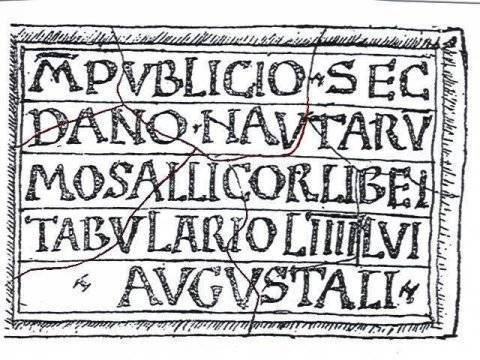 M PVBLICIO · SEC
DANO · NAVTARV
MOSALLICOR LIBEI
TABVLARIO LIIIILVI
AVGVSTALI